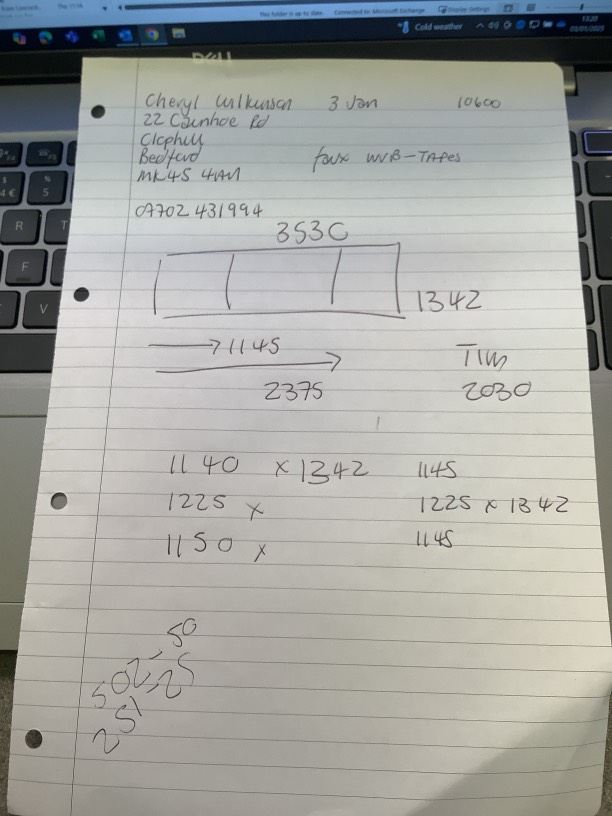 This folder is up to date. Connected to: Microsoft Exchange Display Settings
Cold weather
13:20
03/01/2025
DELL
Cheryl Wilkinson 3 Jan 10600
22 Cainhoe Rd
Clophill
Bedford faux WVB-TAPES
MK45 4AN
07702 431994
353C
1342
1145 Tim
2375 2030
1140 x 1342 1145
1225 x 1225 x 1342
1150 x 1145
50
502-25
251
4 €
%
5
R
T
F
V